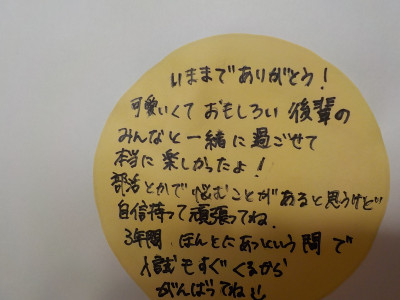 いままでありがとう!
可愛いくておもしろい後輩の
みんなと一緒に過ごせて
本当に楽しかったよ!
部活とかで悩むことがあると思うけど
自信持って頑張ってね.
3年間 ほんとにあっという間で
入試もすぐくるから
がんばってね!!